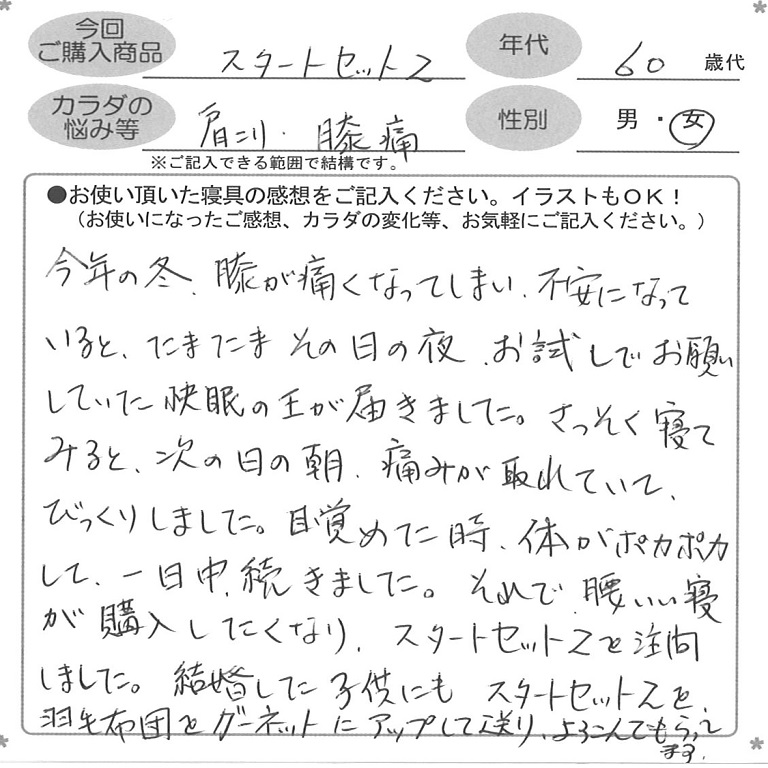 今回
ご購入商品
スタートセットZ
年代
60 歳代
カラダの
悩み等
肩こり・膝痛
性別
男・女
※ご記入できる範囲で結構です。
●お使い頂いた寝具の感想をご記入ください。イラストもOK！
（お使いになったご感想、カラダの変化等、お気軽にご記入ください。）
今年の冬、膝が痛くなってしまい、不安になって
いると、たまたまその日の夜、お試しでお願い
していた快眠の王が届きました。さっそく寝て
みると、次の日の朝、痛みが取れていて、
びっくりしました。目覚めた時、体がポカポカ
して、一日中、続きました。それで、腰いい寝
が購入したくなり、スタートセットZを注向
しました。結婚した子供にも スタートセットZを、
羽毛布団をガーネットにアップして送り、よろこんでもらって
ます。